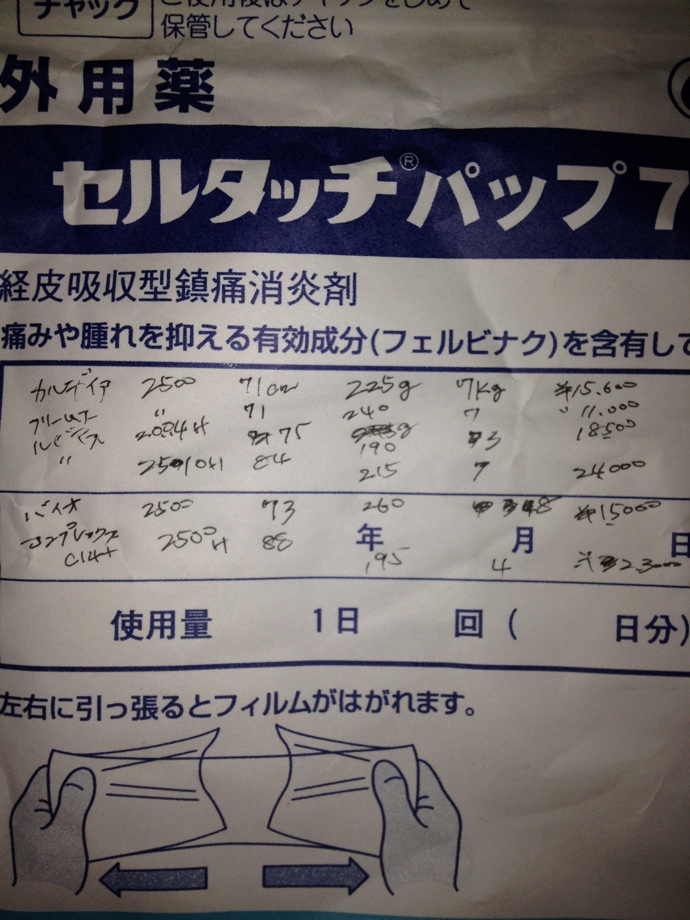 チャック
保管してください
外用薬
セルタッチ®パップ7
経皮吸収型鎮痛消炎剤
痛みや腫れを抑える有効成分(フェルビナク)を含有して
カルディア 2500 71cm 225g 7kg ¥15.600
フリームス 〃 71 240 7 〃 11.000
ルビアス 2004H 75 190 3 18500
〃 2510H 84 215 7 24000
バイオ 2500 73 260 8 ¥15000
コンプレックス 2500H 88 年 月 日
C14+ 195 4 23000
使用量 1日 回 ( 日分)
左右に引っ張るとフィルムがはがれます。